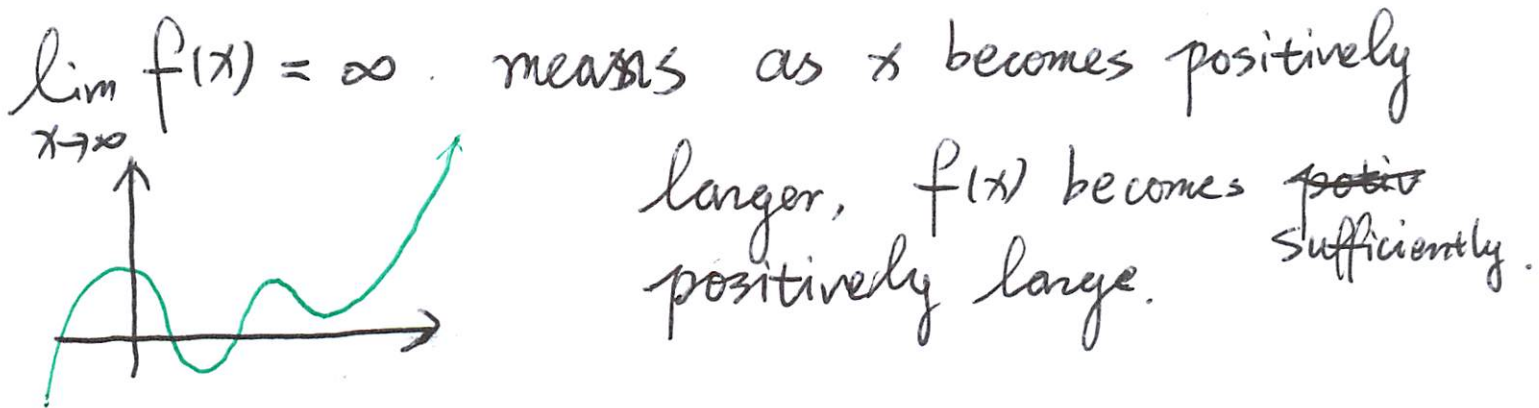 lim f(x) = ∞ . means as x becomes positively
x→∞
larger, f(x) becomes sufficiently.
positively large.